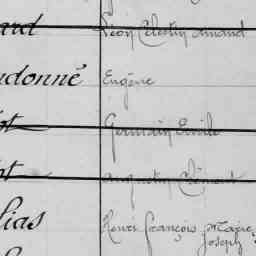 ard Léon Célestin Armand
udonné Eugène
ot Germain Emile
ot Augustin Clément
lias Henri François Marie
Joseph